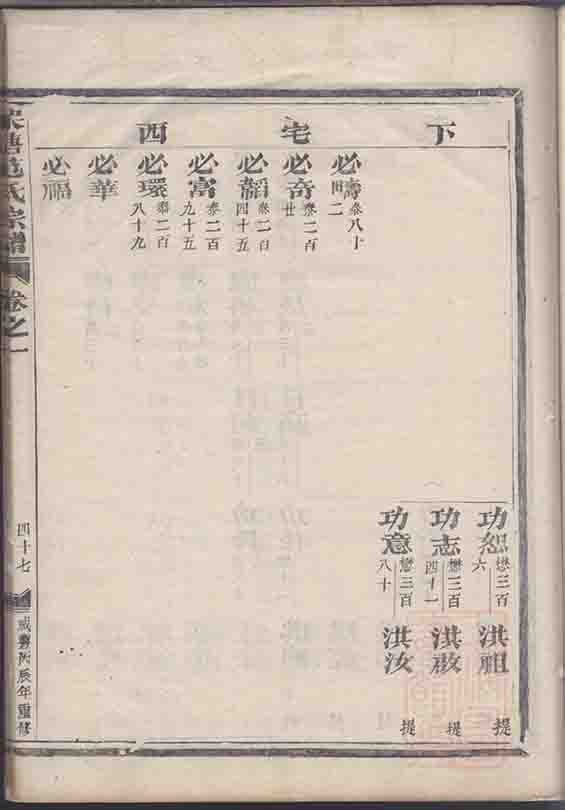 下宅西
必壽 叄八十 田二
必奇 叄二百 廿
必韜 叄二百 四十五
必富 叄二百 九十五
必環 叄二百 八十九
必華
必福
功恕 懋三百 六 洪祖 提
功志 懋三百 四十一 洪啟 提
功意 懋三百 八十 洪汝 提
范氏宗譜
卷之一
四十七
咸豐丙辰年重修